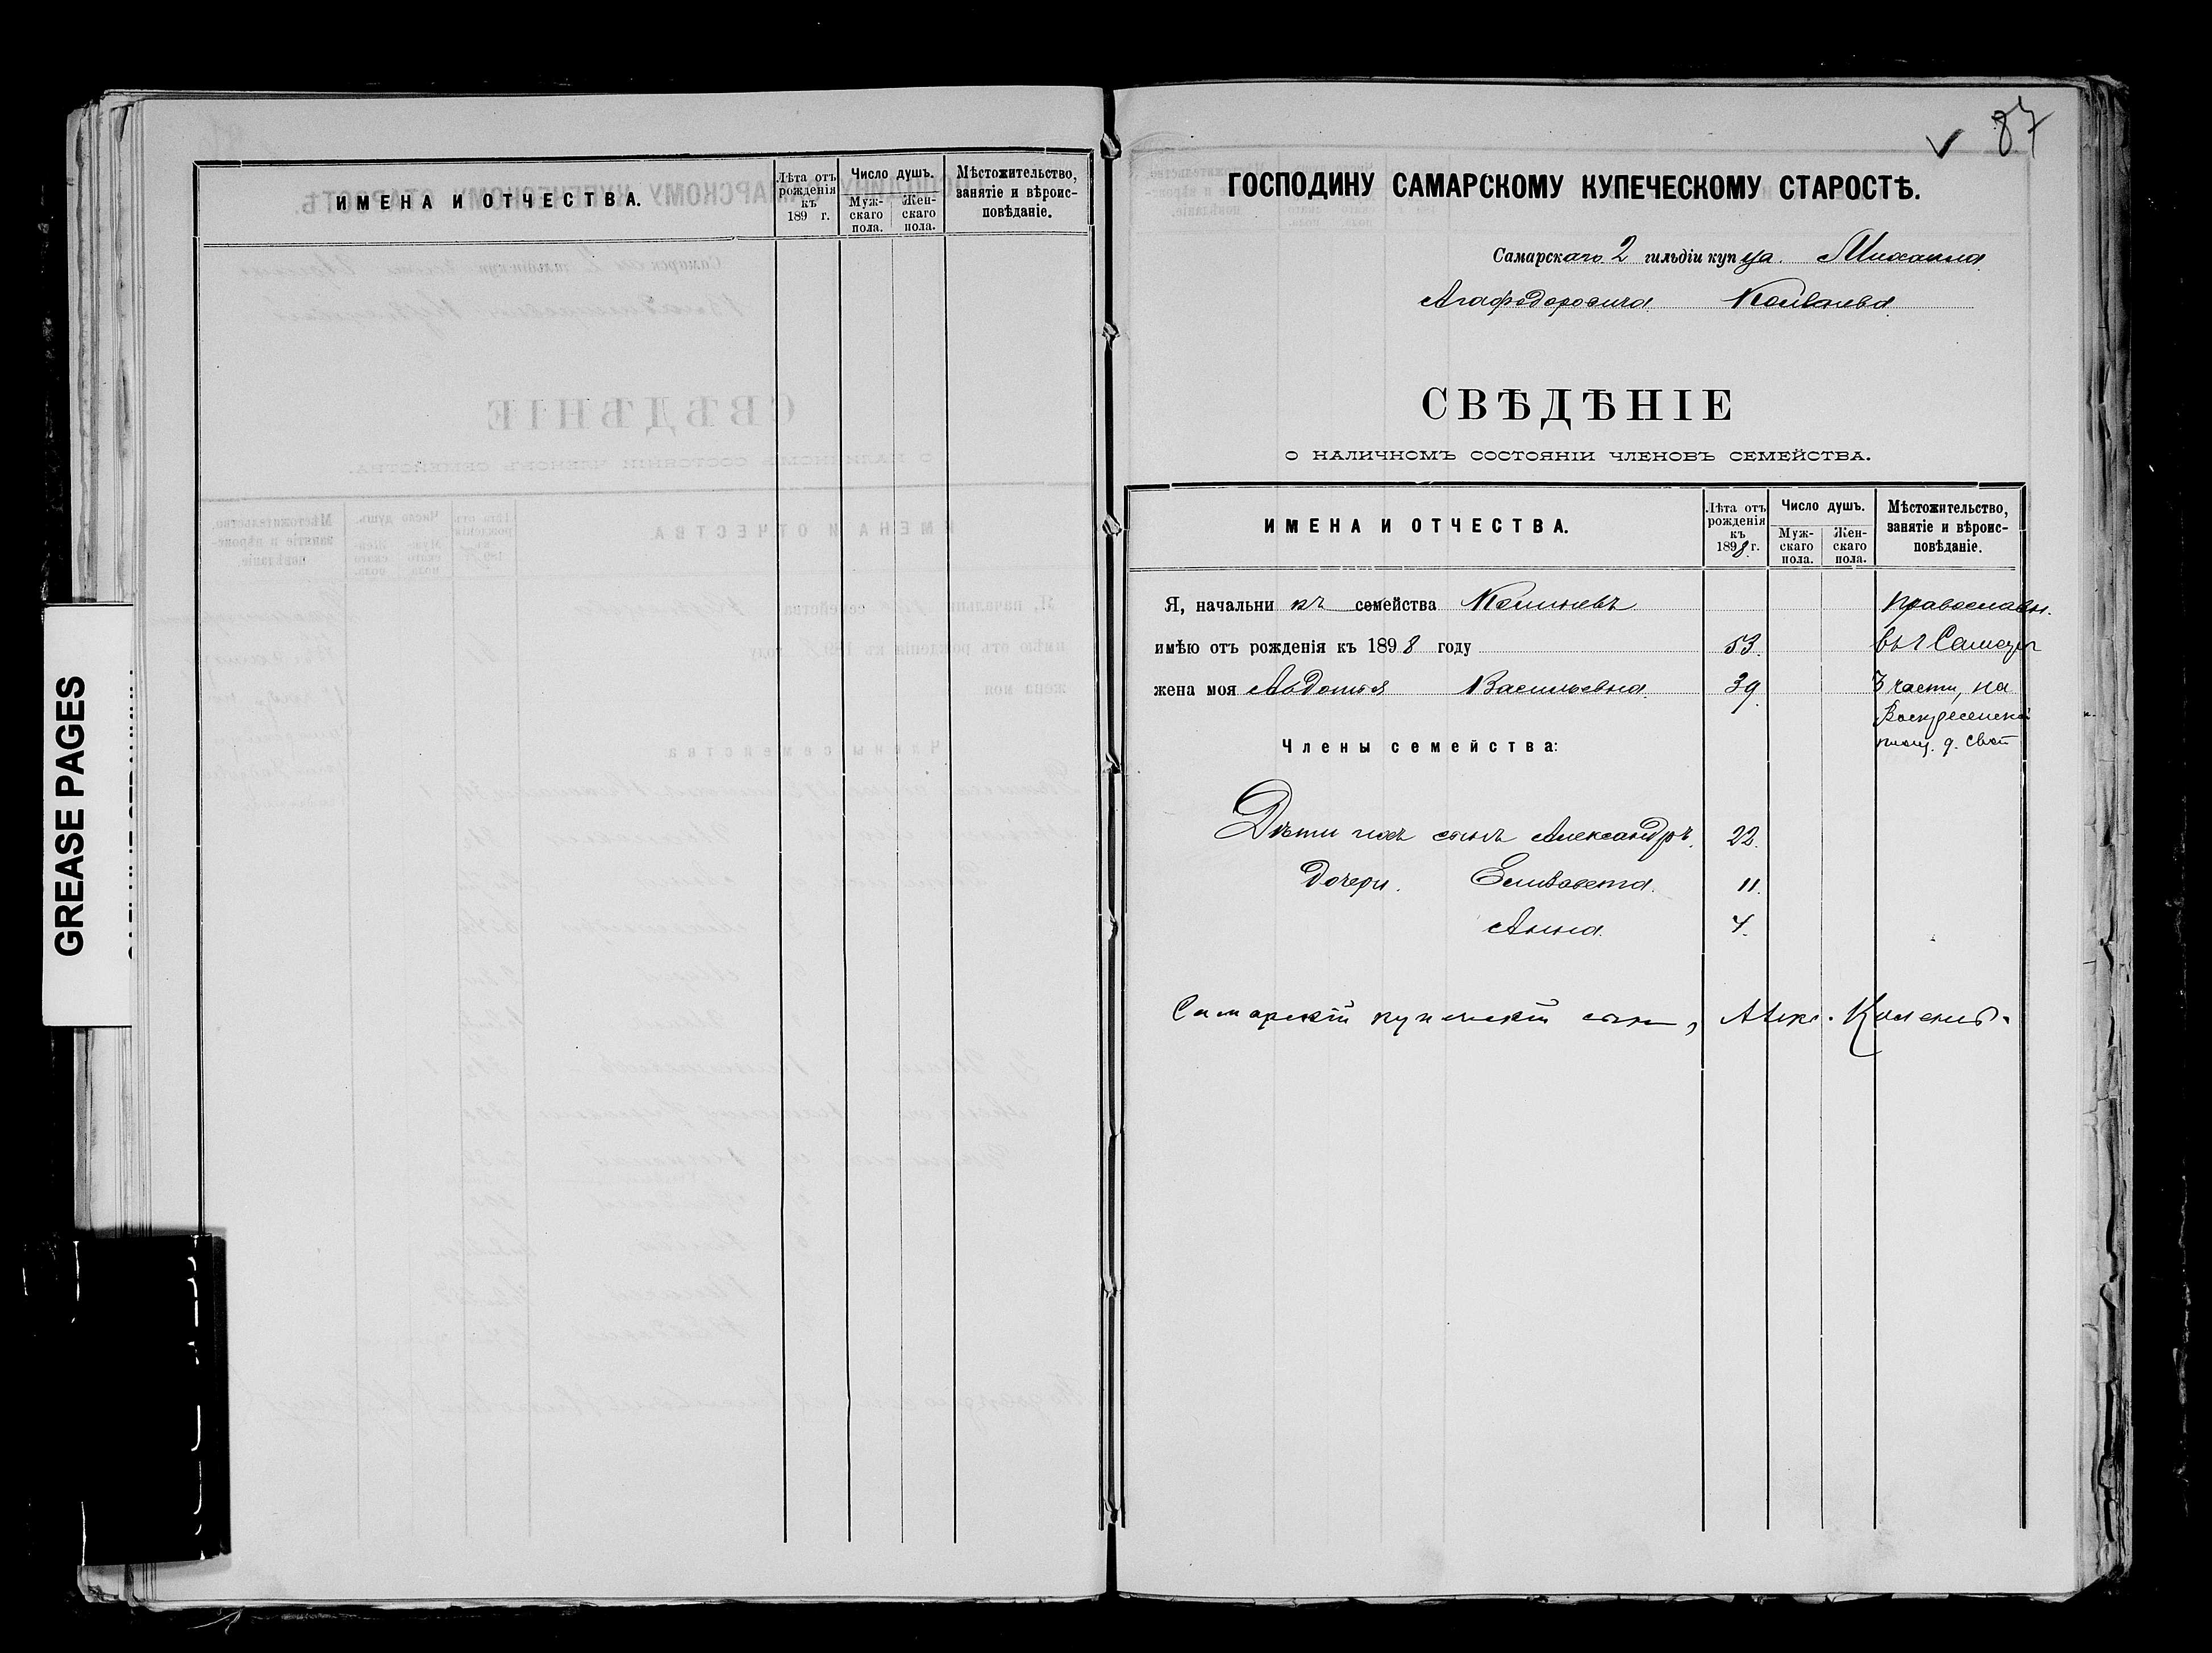 GREASE PAGES
ИМЕНА И ОТЧЕСТВА.
Лѣта отъ рожденія къ 189 г.
Число душъ.
Муж-скаго пола.
Жен-скаго пола.
Мѣстожительство, занятіе и вѣроис-повѣданіе.
87
ГОСПОДИНУ САМАРСКОМУ КУПЕЧЕСКОМУ СТАРОСТѢ.
Самарскаго 2 гильдіи купца Михаила
Агафодоровича
СВѢДѢНІЕ
О НАЛИЧНОМЪ СОСТОЯНІИ ЧЛЕНОВЪ СЕМЕЙСТВА.
ИМЕНА И ОТЧЕСТВА.
Лѣта отъ рожденія къ 1898 г.
Число душъ.
Муж-скаго пола.
Жен-скаго пола.
Мѣстожительство, занятіе и вѣроис-повѣданіе.
Я, начальникъ семейства православн.
имѣю отъ рожденія къ 1898 году 53. въ г Самарѣ
жена моя Авдотья Васильевна 39. 3 части, на
Воскресенской
площ. д.
Члены семейства:
Дѣти ихъ сынъ Александръ. 22.
Дочери. Елизавета. 11.
Анна. 4.
Самарскій купеческій сынъ, Алекс.